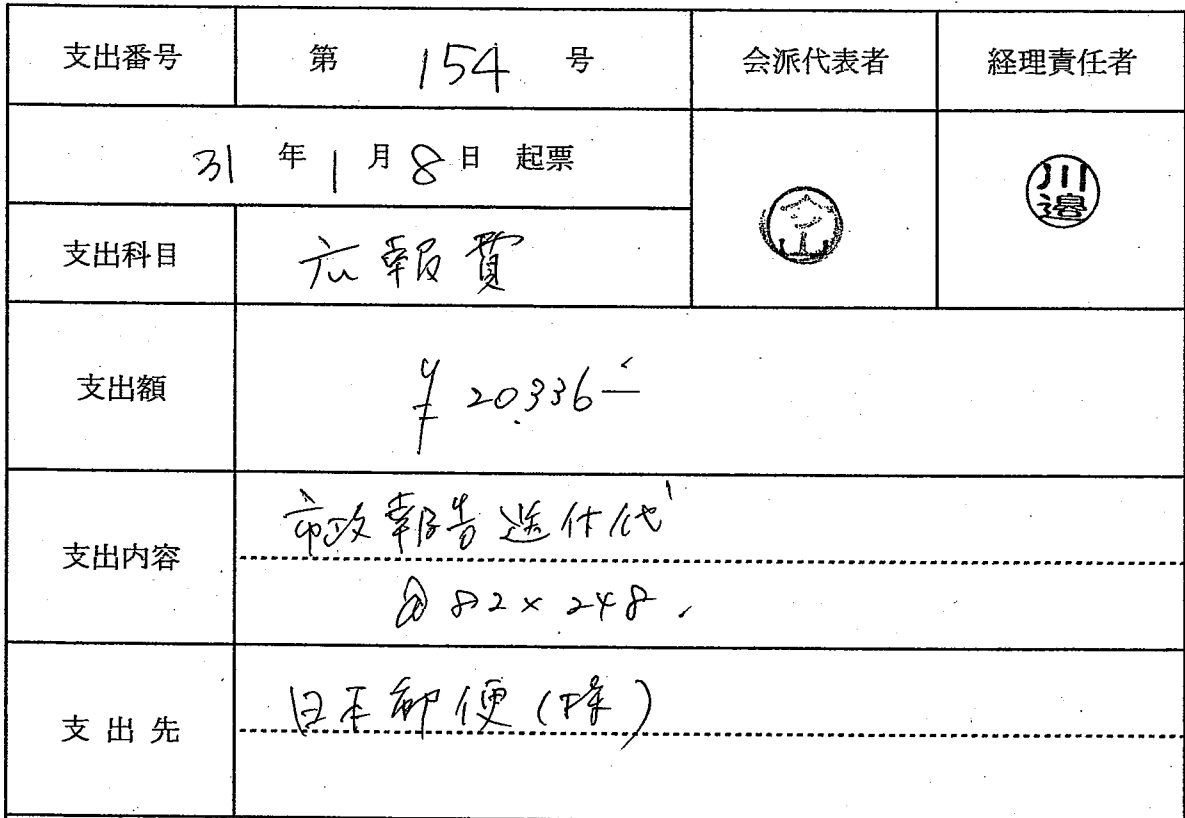 支出番号 第 154 号 会派代表者 経理責任者
31 年 1 月 8 日 起票
川邉
支出科目 広報費
支出額 ¥20,336-
支出内容 市政報告送付代
@82×248.
支出先 日本郵便(株)